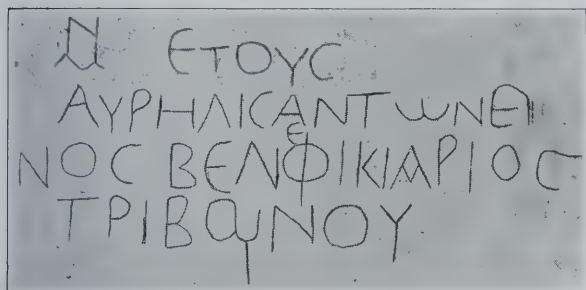 ΕΤΟΥC
ΑΥΡΗΛΙCΑΝΤωΝΕΙ
ΝΟCΒΕΝΕΦΙΚΙΑΡΙΟC
ΤΡΙΒΟΥΝΟΥ